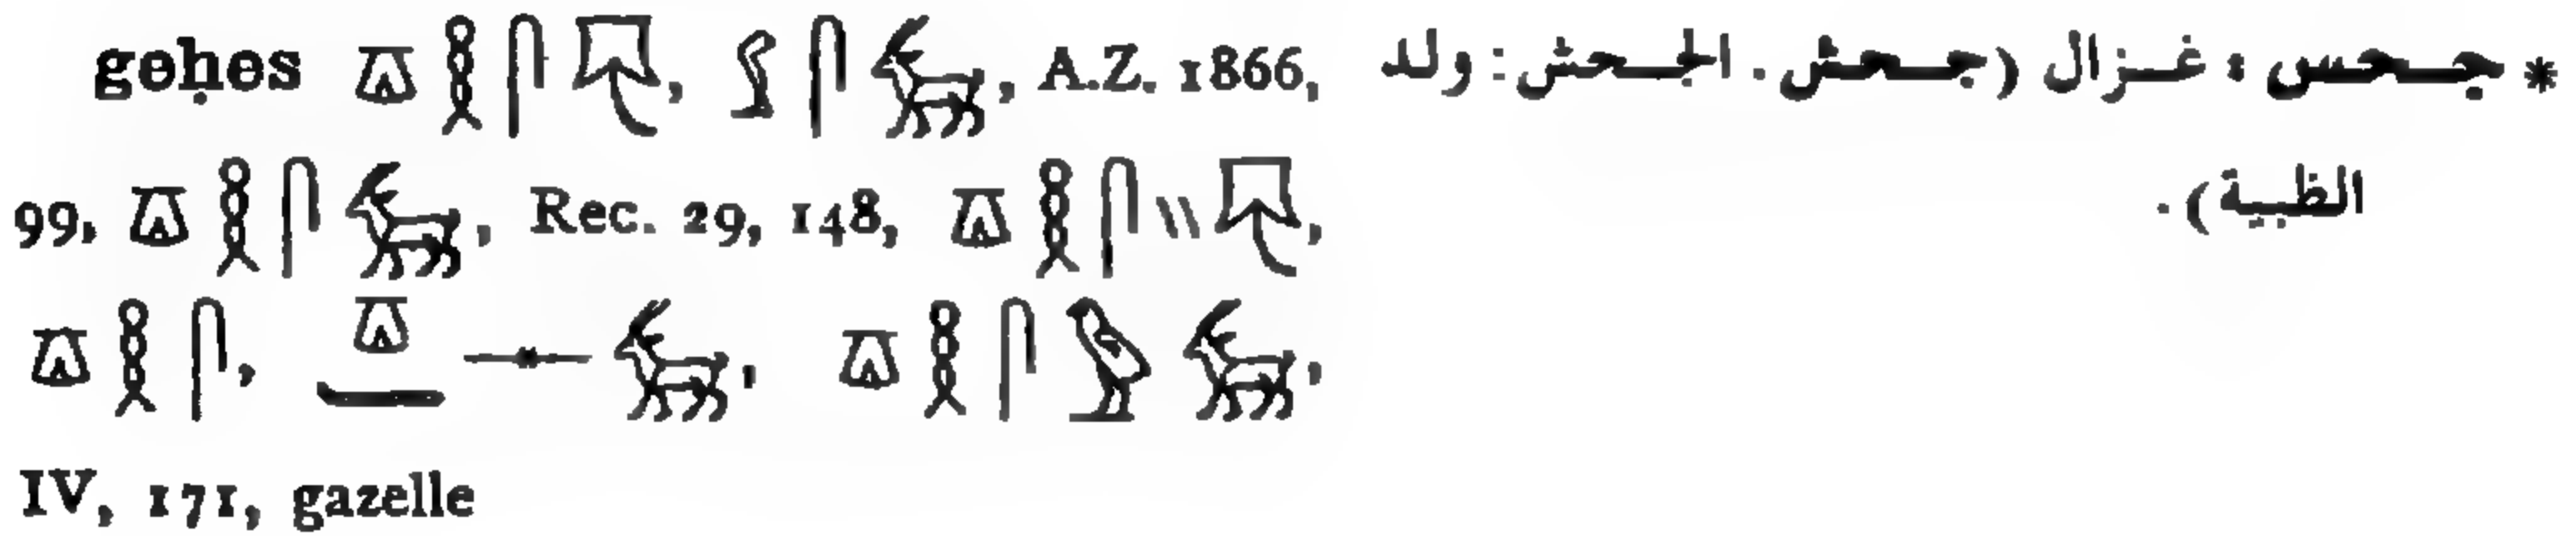 geḥes 𓎼𓎛𓋴𓄛, 𓋴𓃴, A.Z. 1866,
99, 𓎼𓎛𓋴𓃴, Rec. 29, 148, 𓎼𓎛𓋴𓏭𓄛,
𓎼𓎛𓋴, 𓎼𓐝𓊃𓃴, 𓎼𓎛𓋴𓅱𓃴,
IV, 171, gazelle
* جـحس : غـزال (جـحش . الجـحش : ولد
الظبية) .